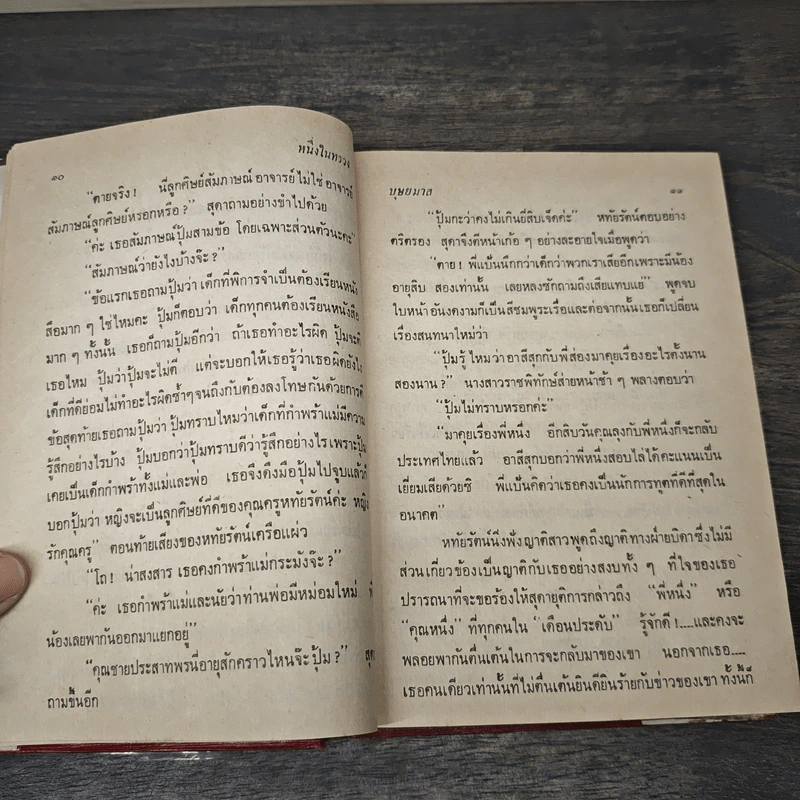 ๑๐
หนึ่งในทรวง
“ตายจริง! นี่ลูกศิษย์สัมภาษณ์ อาจารย์ ไม่ใช่ อาจารย์
สัมภาษณ์ลูกศิษย์หรอกหรือ?” สุดาถามอย่างขำไปด้วย
“ค่ะ เธอสัมภาษณ์ปุ้มสามข้อ โดยเฉพาะส่วนตัวนะคะ”
“สัมภาษณ์ว่ายังไงบ้างจ๊ะ?”
“ข้อแรกเธอถามปุ้มว่า เด็กที่พิการจำเป็นต้องเรียนหนัง
สือมาก ๆ ใช่ไหมคะ ปุ้มก็ตอบว่า เด็กทุกคนต้องเรียนหนังสือ
มาก ๆ ทั้งนั้น เธอก็ถามปุ้มอีกว่า ถ้าเธอทำอะไรผิด ปุ้มจะตี
เธอไหม ปุ้มว่าปุ้มจะไม่ตี แต่จะบอกให้เธอรู้ว่าเธอผิดยังไง
เด็กที่ดีย่อมไม่ทำอะไรผิดซ้ำๆจนถึงกับต้องลงโทษกันด้วยการตี
ข้อสุดท้ายเธอถามปุ้มว่า ปุ้มทราบไหมว่าเด็กที่กำพร้าแม่มีความ
รู้สึกอย่างไรบ้าง ปุ้มบอกว่าปุ้มทราบดีว่ารู้สึกอย่างไร เพราะปุ้ม
เคยเป็นเด็กกำพร้าทั้งแม่และพ่อ เธอจึงดึงมือปุ้มไปจูบแล้วก็
บอกปุ้มว่า หญิงจะเป็นลูกศิษย์ที่ดีของคุณครูหทัยรัตน์ค่ะ หญิง
รักคุณครู” ตอนท้ายเสียงของหทัยรัตน์เครือแผ่ว
“โถ! น่าสงสาร เธอคงกำพร้าแม่กระมังจ๊ะ?”
“ค่ะ เธอกำพร้าแม่และนัยว่าท่านพ่อมีหม่อมใหม่
น้องเลยพากันออกมาแยกอยู่”
“คุณชายประสาทพรนี่อายุสักคราวไหนจ๊ะปุ้ม?”
ถามขึ้นอีก
บุษยมาส
๑๑
“ปุ้มกะว่าคงไม่เกินยี่สิบเจ็ดค่ะ” หทัยรัตน์ตอบอย่าง
ตริตรอง สุดาจึงตีหน้าเก้อ ๆ อย่างละอายใจเมื่อพูดว่า
“ตาย! พี่แป้นนึกว่าเด็กกว่าพวกเราเสียอีกเพราะมีน้อง
อายุสิบ สองเท่านั้น เลยหลงซักถามถึงเสียแทบแย่” พูดจบ
ใบหน้าอันงดงามก็เป็นสีชมพูระเรื่อและต่อจากนั้นเธอก็เปลี่ยน
เรื่องสนทนาใหม่ว่า
“ปุ้มรู้ ไหมว่า อาสีสุกกับพี่สองมาคุยเรื่องอะไรตั้งนาน
สองนาน?” นางสาวราชพิทักษ์ส่ายหน้าช้า ๆ พลางตอบว่า
“ปุ้มไม่ทราบหรอกค่ะ”
“มาคุยเรื่องพี่หนึ่ง อีกสิบวันคุณลุงกับพี่หนึ่งก็จะกลับ
ประเทศไทยแล้ว อาสีสุกบอกว่าพี่หนึ่งสอบไล่ได้คะแนนเป็น
เยี่ยมเสียด้วยซิ พี่แป้นคิดว่าเธอคงเป็นนักการทูตที่ดีที่สุดใน
อนาคต”
หทัยรัตน์นิ่งฟังญาติสาวพูดถึงญาติทางฝ่ายบิดาซึ่งไม่มี
ส่วนเกี่ยวข้องเป็นญาติกับเธออย่างสงบทั้ง ๆ ที่ใจของเธอ
ปรารถนาที่จะขอร้องให้สุดายุติการกล่าวถึง “พี่หนึ่ง” หรือ
“คุณหนึ่ง” ที่ทุกคนใน ‘เดือนประดับ” รู้จักดี!....และคงจะ
พลอยพากันตื่นเต้นในการจะกลับมาของเขา นอกจากเธอ....
เธอคนเดียวเท่านั้นที่ไม่ตื่นเต้นยินดียินร้ายกับข่าวของเขา ทั้งนี้ก็